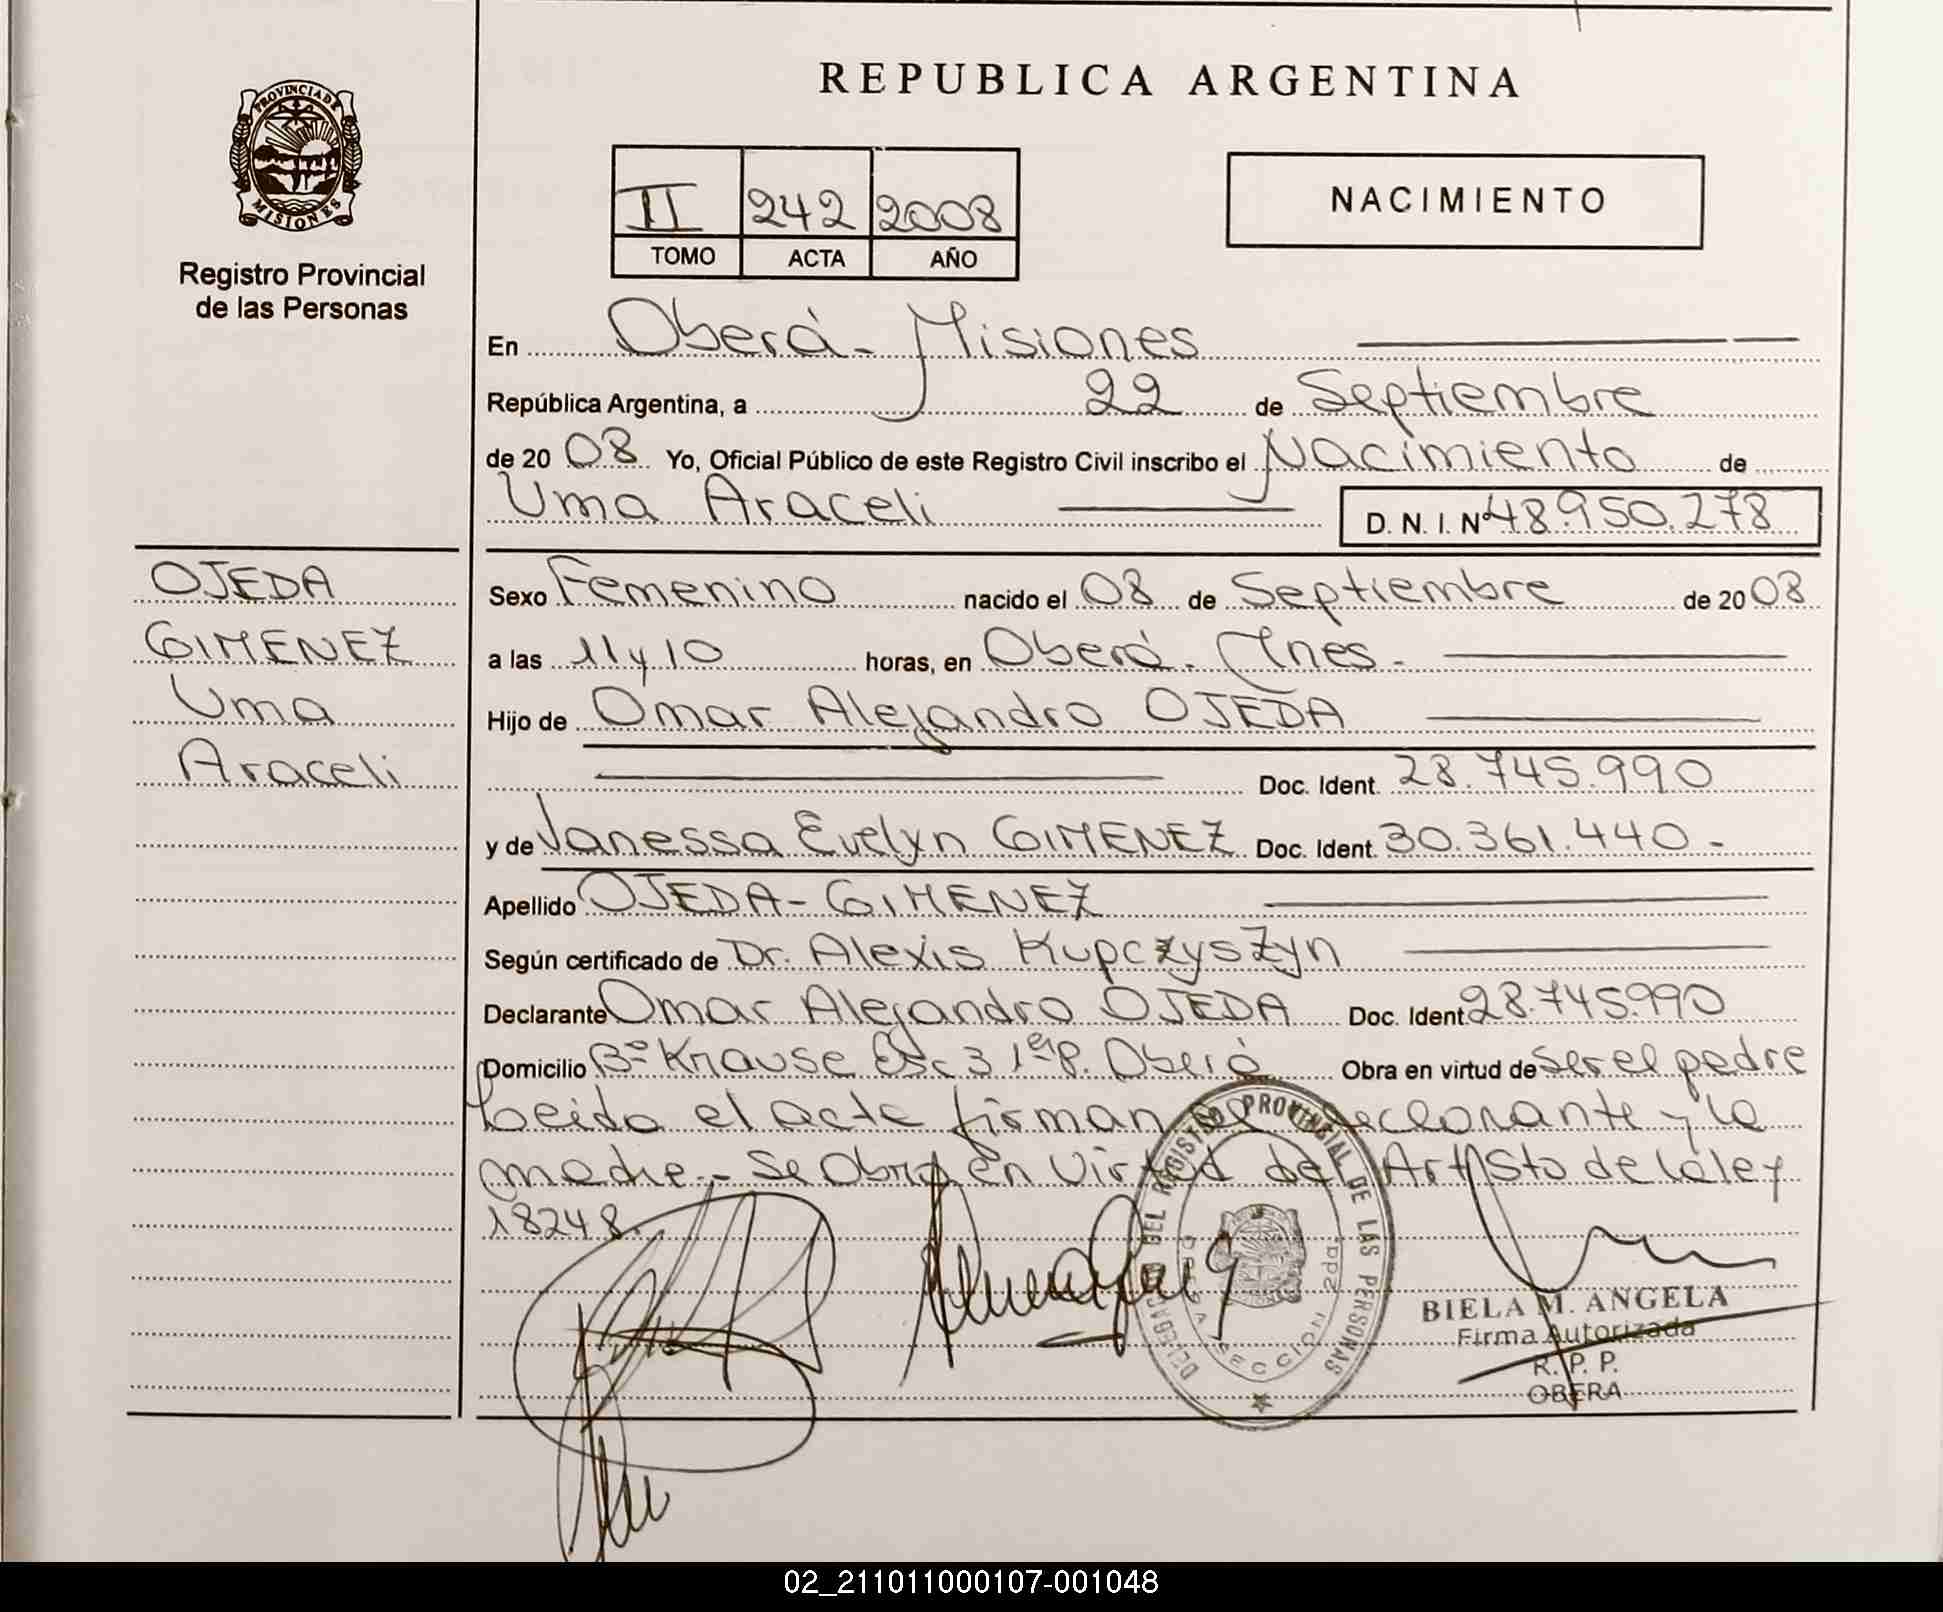 REPUBLICA ARGENTINA
PROVINCIA DE
MISIONES
Registro Provincial
de las Personas
II 242 2008
TOMO ACTA AÑO
NACIMIENTO
En Oberá - Misiones
República Argentina, a 22 de Septiembre
de 2008 Yo, Oficial Público de este Registro Civil inscribo el Nacimiento de
Uma Araceli D. N. I. Nº 48.950.278
OJEDA
GIMENEZ
Uma
Araceli
Sexo Femenino nacido el 08 de Septiembre de 2008
a las 11 y 10 horas, en Oberá. Mnes.
Hijo de Omar Alejandro OJEDA
Doc. Ident. 28.745.990
y de Vanessa Evelyn GIMENEZ Doc. Ident. 30.361.440.-
Apellido OJEDA - GIMENEZ
Según certificado de Dr. Alexis Kupczyszyn
Declarante Omar Alejandro OJEDA Doc. Ident. 28.745.990
Domicilio Bº Krause Esc 3 1er P. Oberá Obra en virtud de ser el padre
Leida el acta firman el declarante y la
madre.- Se Obra en Virtud del Art 5to de la ley
18248.
DELEGACION DEL REGISTRO PROVINCIAL DE LAS PERSONAS
OBERA SECCION 2da
BIELA M. ANGELA
Firma Autorizada
R. P. P.
OBERA
02_211011000107-001048